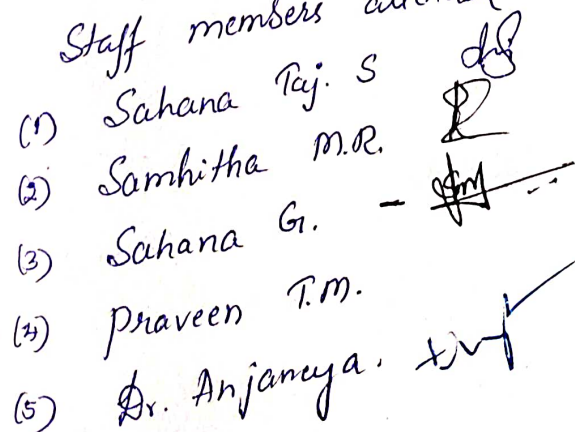 Staff members
(1) Sahana Taj. S
(2) Samhitha M.R.
(3) Sahana G. -
(4) Praveen T.M.
(5) Dr. Anjaneya.